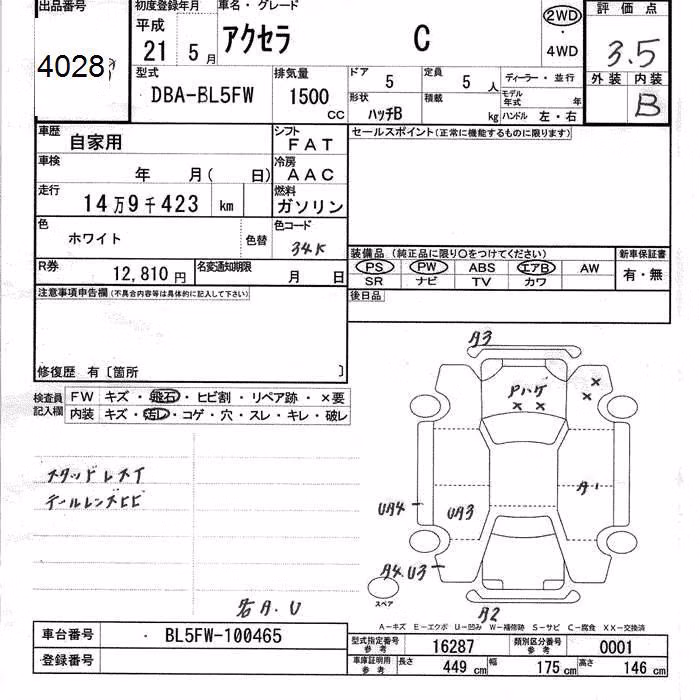 出品番号 初度登録年月 車名・グレード 2WD 評価点
4028 平成 21 5月 アクセラ C ・ 4WD 3.5
型式 排気量 ドア 5 定員 5人 ディーラー・並行 外装 内装
DBA-BL5FW 1500 CC 形状 ハッチB 積載 kg モデル年式 年 ハンドル 左・右 B
車歴 自家用 シフト FAT セールスポイント(正常に機能するものに限ります)
車検 年 月( 日) 冷房 AAC
走行 14万9千423 km 燃料 ガソリン
色 ホワイト 色替 色コード 34K
装備品(純正品に限り○をつけてください) 新車保証書
PS PW ABS エアB AW 有・無
SR ナビ TV カワ
R券 12,810円 名変通知期限 月 日
後日品
注意事項申告欄(不具合内容等は具体的に記入して下さい)
修復歴 有〔箇所 〕
検査員記入欄 FW キズ・飛石・ヒビ割・リペア跡・×要
内装 キズ・汚レ・コゲ・穴・スレ・キレ・破レ
A3
Pハゲ
×× ××
スタッドレスT
テールレンズヒビ
UA4 UA3 A1
A4.U3
スペア
右A.U A2
A-キズ E-エクボ U-凹み W-補修跡 S-サビ C-腐食 XX-交換済
車台番号 BL5FW-100465
登録番号
型式指定番号 参考 16287 類別区分番号 参考 0001
車庫証明用 参考 長さ 449cm 幅 175cm 高さ 146cm